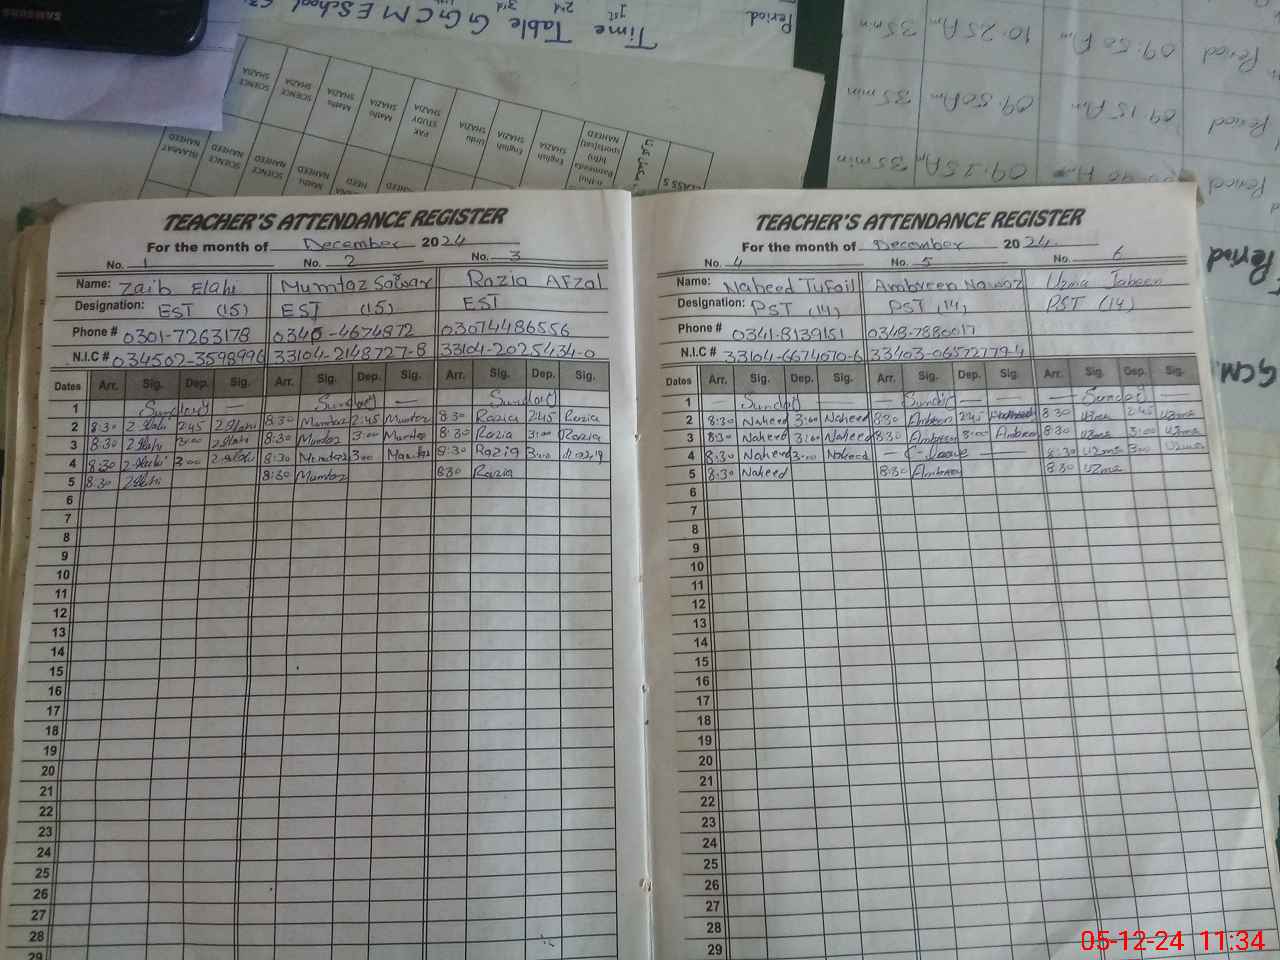 SAMSUNG
Time Table GGCMESchool
Period
1st
2nd
3rd
Period 09:50 Am 10:25 Am 35 min
Period 09:15 Am 09:50 Am 35 min
Period 09:15 Am 35 min
Period
GCM
SCIENCE SHAZIA
SCIENCE SHAZIA
Maths SHAZIA
Maths SHAZIA
PAK STUDY SHAZIA
Urdu SHAZIA
English SHAZIA
English SHAZIA
NAHEED
CLASS 5
ISLAMIAT NAHEED
SCIENCE NAHEED
SCIENCE NAHEED
Maths NAHEED
TEACHER'S ATTENDANCE REGISTER
For the month of December 2024
No. 1 No. 2 No. 3
Name: Zaib Elahi Mumtaz Sarwar Razia Afzal
Designation: EST (15) EST (15) EST
Phone # 0301-7263178 0340-4674872 03074486556
N.I.C # 034502-3598996 33104-2148727-8 33104-2025434-0
Dates Arr. Sig. Dep. Sig. Arr. Sig. Dep. Sig. Arr. Sig. Dep. Sig.
1 Sunday — Sunday — Sunday
2 8:30 Z.Elahi 2:45 Z.Elahi 8:30 Mumtaz 2:45 Mumtaz 8:30 Razia 2:45 Razia
3 8:30 Z.Elahi 3:00 Z.Elahi 8:30 Mumtaz 3:00 Mumtaz 8:30 Razia 3:00 Razia
4 8:30 Z.Elahi 3:00 Z.Elahi 8:30 Mumtaz 3:00 Mumtaz 8:30 Razia 3:00 Razia
5 8:30 Z.Elahi 8:30 Mumtaz 8:30 Razia
6
7
8
9
10
11
12
13
14
15
16
17
18
19
20
21
22
23
24
25
26
27
28
29
TEACHER'S ATTENDANCE REGISTER
For the month of December 2024
No. 4 No. 5 No. 6
Name: Naheed Tufail Ambreen Nawaz Uzma Jabeen
Designation: PST (14) PST (14) PST (14)
Phone # 0341-8139151 0348-7880017
N.I.C # 33104-6674070-6 33403-06572779-4
Dates Arr. Sig. Dep. Sig. Arr. Sig. Dep. Sig. Arr. Sig. Dep. Sig.
1 — Sunday — — Sunday — — — Sunday
2 8:30 Naheed 3:00 Naheed 8:30 Ambreen 2:45 8:30 Uzma 2:45 Uzma
3 8:30 Naheed 3:00 Naheed 8:30 Ambreen 3:00 Ambreen 8:30 Uzma 3:00 Uzma
4 8:30 Naheed 3:00 Naheed — C-leave — 8:30 Uzma 3:00 Uzma
5 8:30 Naheed 8:30 Ambreen 8:30 Uzma
6
7
8
9
10
11
12
13
14
15
16
17
18
19
20
21
22
23
24
25
26
27
28
29
05-12-24 11:34